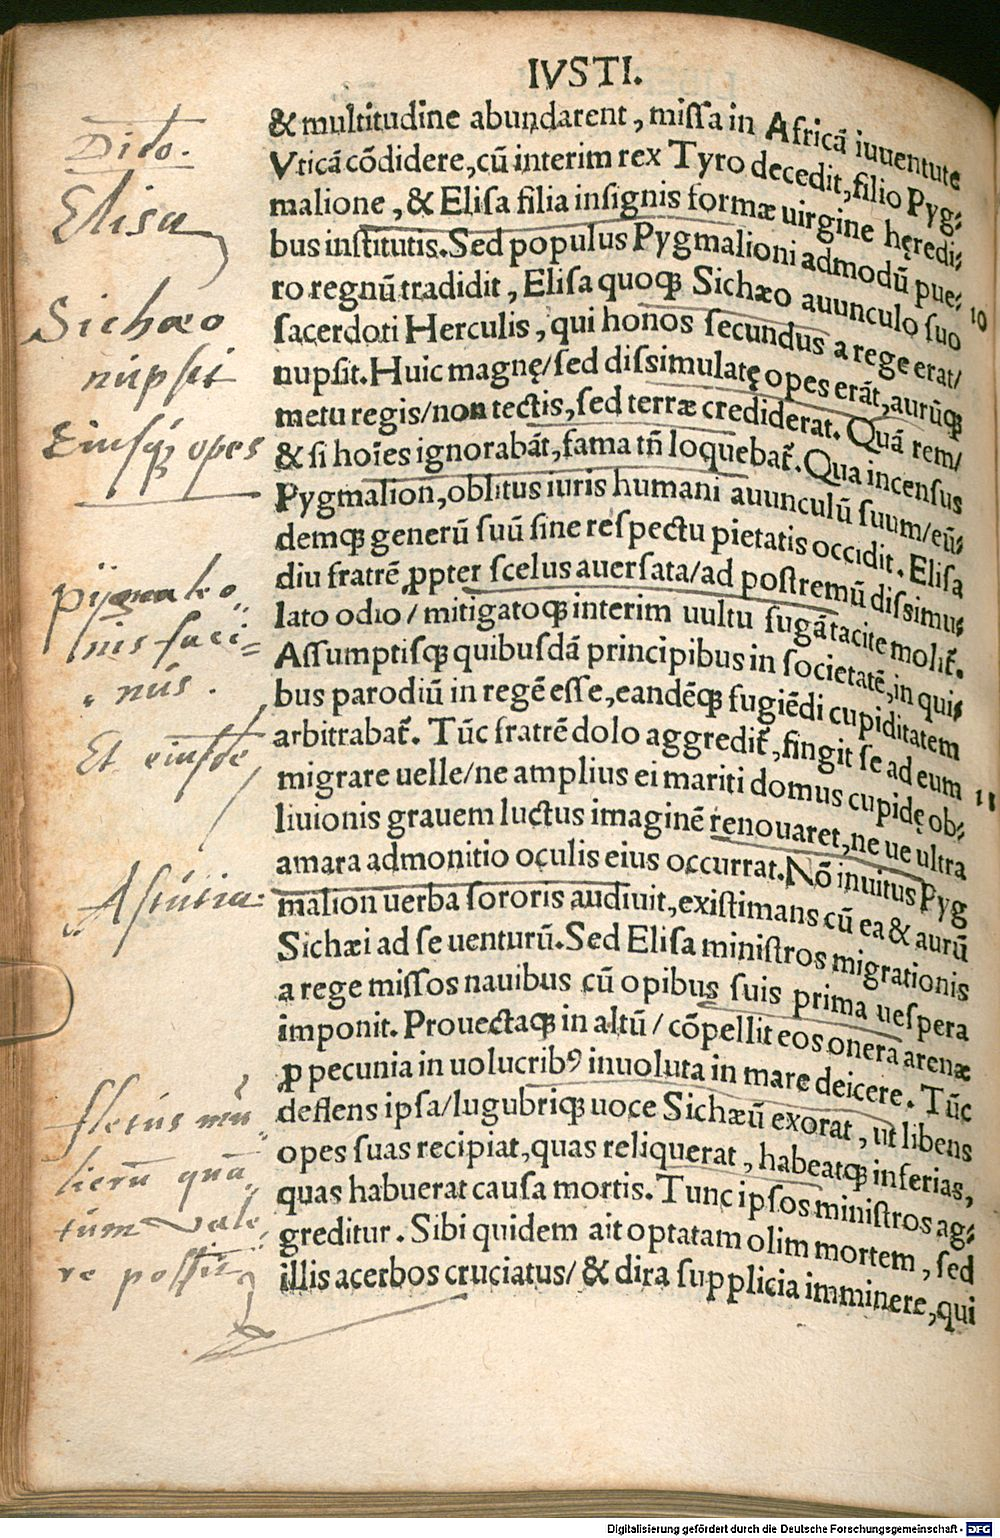 IVSTI.
Dido.
Elisa
Sichæo
nupsit
Eiusq; opes
Pijgmaleo
nis faci=
nus.
Et eiusdē
Astutia.
fletus mu
lierū quā
tum vale
re possit
& multitudine abundarent, missa in Africā iuuentute
Vticā cōdidere, cū interim rex Tyro decedit, filio Pyg⸗
malione, & Elisa filia insignis formæ uirgine hęredi⸗
bus institutis. Sed populus Pygmalioni admodū pue⸗
ro regnū tradidit, Elisa quoqꝫ Sichæo auunculo suo
10
sacerdoti Herculis, qui honos secundus a rege erat/
nupsit. Huic magnę/sed dissimulatę opes erāt, aurūqꝫ
metu regis/non tectis, sed terræ crediderat. Quā rem/
& si hoīes ignorabāt, fama tñ loquebat᷑. Qua incensus
Pygmalion, oblitus iuris humani auunculū suum/eū⸗
demqꝫ generū suū sine respectu pietatis occidit. Elisa
diu fratrē ꝓpter scelus auersata/ad postremū dissimu⸗
lato odio/mitigatoqꝫ interim uultu fugā tacite molit᷑.
Assumptisqꝫ quibusdā principibus in societatē, in qui⸗
bus parodiū in regē esse, eandēqꝫ fugiēdi cupiditatem
arbitrabat᷑. Tūc fratrē dolo aggredit᷑, fingit se ad eum
migrare uelle/ne amplius ei mariti domus cupidę ob⸗
liuionis grauem luctus imaginē renouaret, ne ue ultra
amara admonitio oculis eius occurrat. Nō inuitus Pyg
malion uerba sororis audiuit, existimans cū ea & aurū
Sichæi ad se uenturū. Sed Elisa ministros migrationis
a rege missos nauibus cū opibus suis prima uespera
imponit. Prouectaqꝫ in altū/cōpellit eos onera arenæ
ꝓ pecunia in uolucribꝰ inuoluta in mare deicere. Tūc
deflens ipsa/lugubriqꝫ uoce Sichæū exorat, ut libens
opes suas recipiat, quas reliquerat, habeatqꝫ inferias,
quas habuerat causa mortis. Tunc ipsos ministros ag⸗
greditur. Sibi quidem ait optatam olim mortem, sed
illis acerbos cruciatus/& dira supplicia imminere, qui
Digitalisierung gefördert durch die Deutsche Forschungsgemeinschaft - DFG